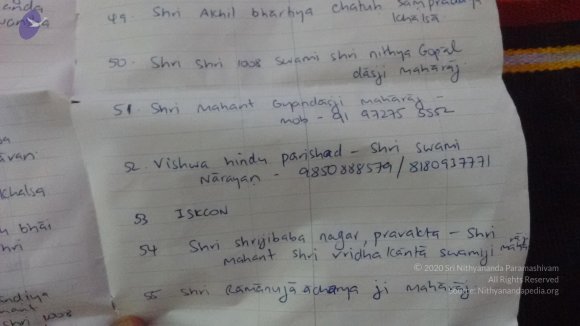 anda
49. Shri Akhil bhartiya chatuh sampradaya
khalsa
50. Shri Shri 1008 swami shri nithya Gopal
dasji mahārāj
51. Shri Mahant Gyandasji mahārāj
mob - 91 97275 5552
52. Vishwa hindu parishad - Shri swami
Nārayan - 9850888579 / 8180937771
khalsa
53 ISKCON
bhāi
hri
54 Shri shrijibaba nagar, pravakta - Shri
mahant shri vridha kāntā swamiji
55 Shri Rāmānujā acharya ji mahārāj
ndiya
mant
shri 1008
© 2020 Sri Nithyananda Paramashivam
All Rights Reserved
Source: Nithyanandapedia.org